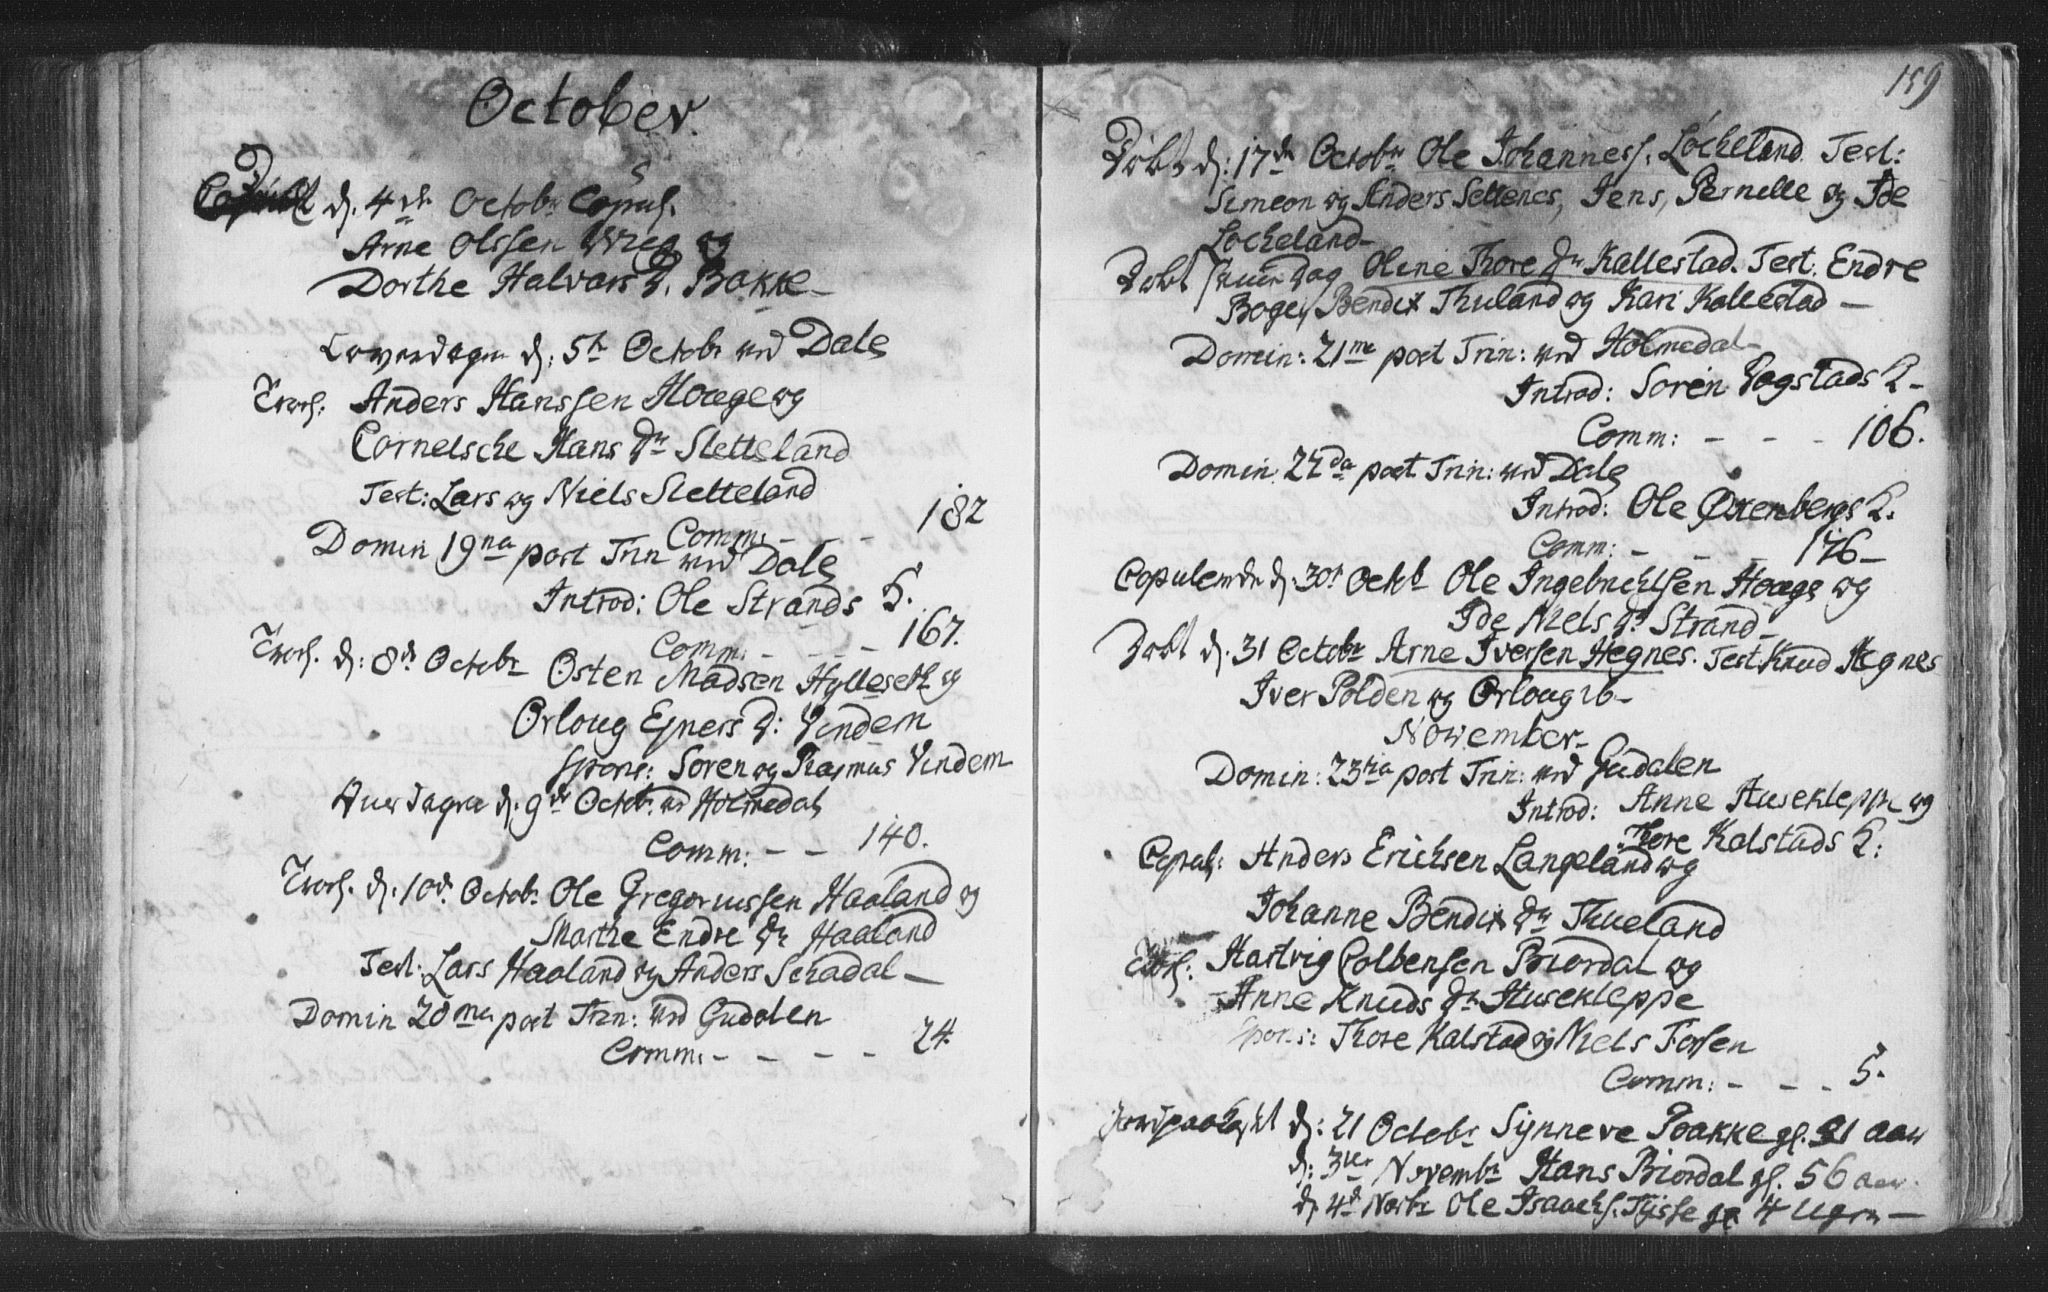 October.
d. 4de Octobr Copul.
Arne Olssen Wreg og
Dorthe Halvars D. Bakke
Løverdagen d: 5te Octobr ved Dale
Trol. Anders Hanssen Hoage og
Cornelsche Hans Dr Sletteland
Test: Lars og Niels Sletteland
Comm: - - 182
Domin 19na post Trin ved Dale
Introd: Ole Strands K.
Comm: - - - 167.
Trol. d: 8de Octobr Osten Madsen Hylleseth og
Orloug Ejners D: Vindem
Spons: Soren og Rasmus Vindem
d. 9de Octobr ved Holmedal
Comm: - - 140.
Trol. d. 10de Octobr Ole Gregoriussen Haaland og
Marthe Endre Dr Haaland
Test: Lars Haaland og Anders Schadal
Domin 20ma post Trin: ved Gudalen
Comm: - - - - 24.
159
Døbt d: 17de Octobr Ole Johanness. Løcheland Test:
Simeon og Anders Settenes, Jens, Pernelle og Ide
Løcheland
Døbt samme Dag Oline Thore Dr Kallestad. Test. Endre
Boge, Bendix Thuland og Kari Kallestad
Domin: 21me post Trin: ved Holmedal
Introd: Soren Vogstads K
Comm: - - - 106.
Domin. 22da post Trin: ved Dale
Introd: Ole Oxenbergs K.
Comm: - - - 176
Copulerede d. 30te Octb Ole Ingebrichtsen Hoage og
Ide Niels Dr Strand
Døbt d. 31 Octobr Arne Iversen Hegnes. Test. Knud Hegnes
Iver Polden og Orloug ib
November
Domin: 23tia post Trin: ved Gudalen
Introd: Anne Husekleppe og
Thore Kalstads K:
Copul: Anders Erichsen Langeland og
Johanne Bendix Dr Thueland
Trol: Hartvig Colbensen Biordal og
Anne Knuds Dr Husekleppe
Spons: Thore Kalstad og Niels Forsen
Comm: - - - 5.
Jordpaakast d: 21 Octobr Synneve Baakke gl. 91 aar
d: 3die Novembr Hans Biordal gl. 56 aar
d. 4de Novbr Ole Isaachs. Tysse gl 4 Uger